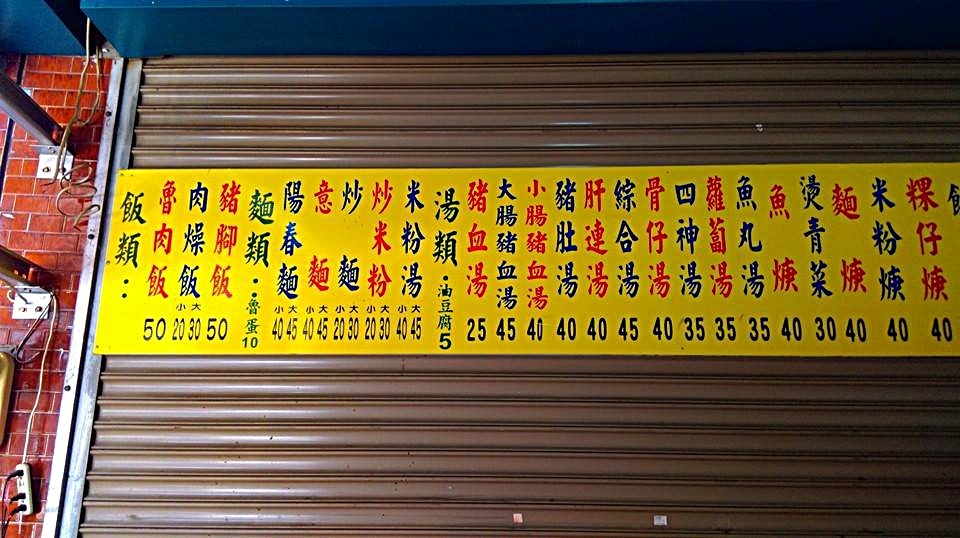 飯類：
魯肉飯 50
肉燥飯 小20 大30
豬腳飯 50
麵類：魯蛋10
陽春麵 小40 大45
意麵 小40 大45
炒麵 小20 大30
炒米粉 小20 大30
米粉湯 小40 大45
湯類：油豆腐5
豬血湯 25
大腸豬血湯 45
小腸豬血湯 40
豬肚湯 40
肝連湯 40
綜合湯 45
骨仔湯 40
四神湯 35
蘿蔔湯 35
魚丸湯 35
魚焿 40
燙青菜 30
麵焿 40
米粉焿 40
粿仔焿 40
飯